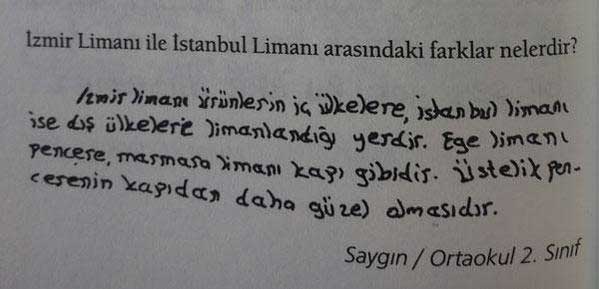 İzmir Limanı ile İstanbul Limanı arasındaki farklar nelerdir?
İzmir limanı ürünlerin iç ülkelere, istanbul limanı
ise dış ülkelere limanlandığı yerdir. Ege limanı
pencere, marmara limanı kapı gibidir. Üstelik pen-
cerenin kapıdan daha güzel olmasıdır.
Saygın / Ortaokul 2. Sınıf